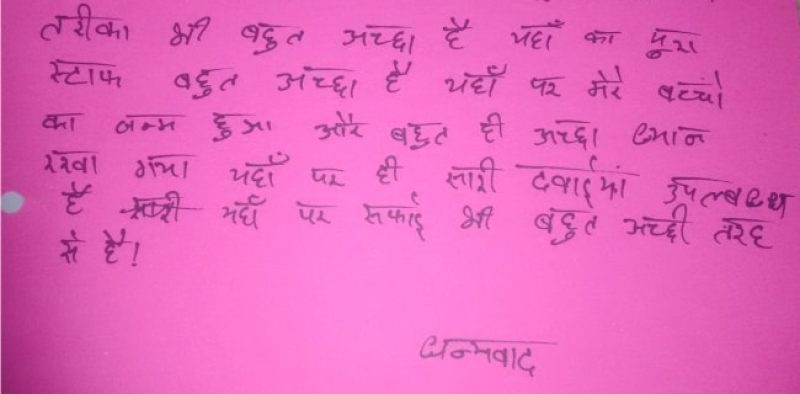 तरीका भी बहुत अच्छा है यहाँ का पुरा
स्टाफ बहुत अच्छा है यहाँ पर मेरे बच्चो
का जन्म हुआ और बहुत ही अच्छा ध्यान
रखा गया यहाँ पर ही सारी दवाईयां उपलबध्ध
है सारी यहाँ पर सफाई भी बहुत अच्छी तरह
से है!
धन्यवाद